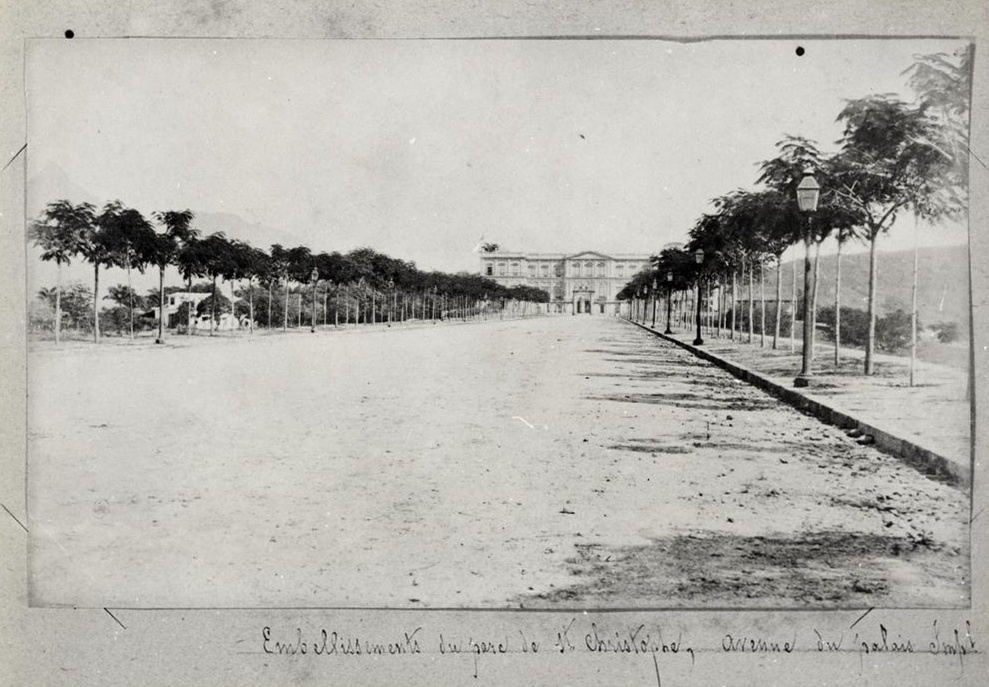 Embellissements du parc de St Christophe, avenue du palais Impl